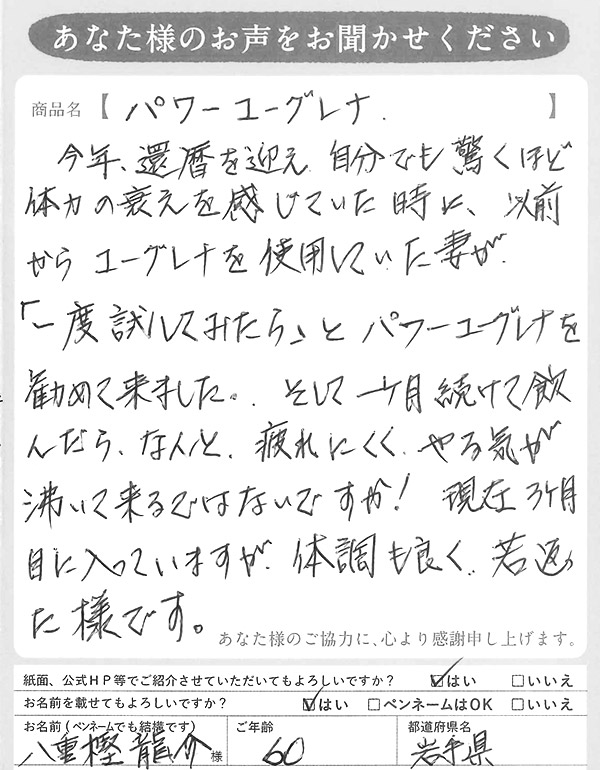 あなた様のお声をお聞かせください
商品名【パワーユーグレナ.】
今年、還暦を迎え、自分でも驚くほど
体力の衰えを感じていた時に、以前
からユーグレナを使用していた妻が、
「一度試してみたら」とパワーユーグレナを
勧めて来ました。そして一ヶ月続けて飲
んだら、なんと、疲れにくく、やる気が
沸いて来るではないですか!現在3ヶ月
目に入っていますが、体調も良く、若返っ
た様です。
あなた様のご協力に、心より感謝申し上げます。
紙面、公式HP等でご紹介させていただいてもよろしいですか? ☑はい □いいえ
お名前を載せてもよろしいですか? ☑はい □ペンネームはOK □いいえ
お名前(ペンネームでも結構です) ご年齢 都道府県名
八重樫龍介様 60 岩手県